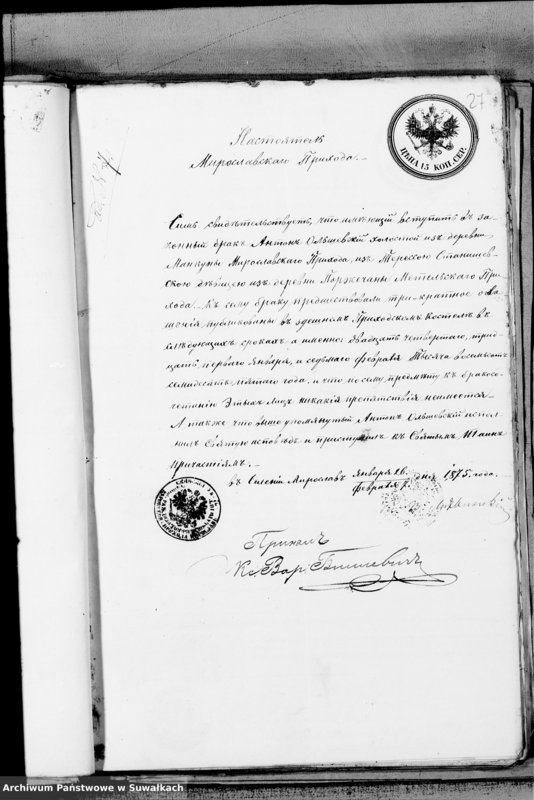 27
ЦѢНА 15 КОП. СЕР.
Настоятель
Мирославскаго Прихода.
Симъ свидѣтельствуетъ, что имѣющій вступить въ за-
конный бракъ Антонъ Ольшевскій холостой изъ деревни
Манкуны Мирославскаго Прихода, изъ Терессою Станишев-
скою дѣвицею изъ деревни Поржечаны Метельскаго При-
хода. Къ сему браку предшествовали трикратное огла-
шенія публикованы въ здешномъ Приходскомъ костелѣ въ
слѣдующихъ срокахъ а именно: двадцать четвертаго, трид-
цать перваго Января, и седьмаго февраля тысяча восемьсотъ
семидесятъ пятаго года, и что по сему предмѣту къ бракосо-
четанію Этыхъ лицъ никакія препятствія неимеется.
А также что выше упомянутый Антонъ Ольшевскій испол-
нилъ Святую исповѣдь и приступилъ къ Святымъ Тайнъ
причастіямъ.
въ Селеніи Мирославъ Января 26. дня 1875. года.
Февраля 7.
Принялъ
Кс. Вар.
Archiwum Państwowe w Suwałkach